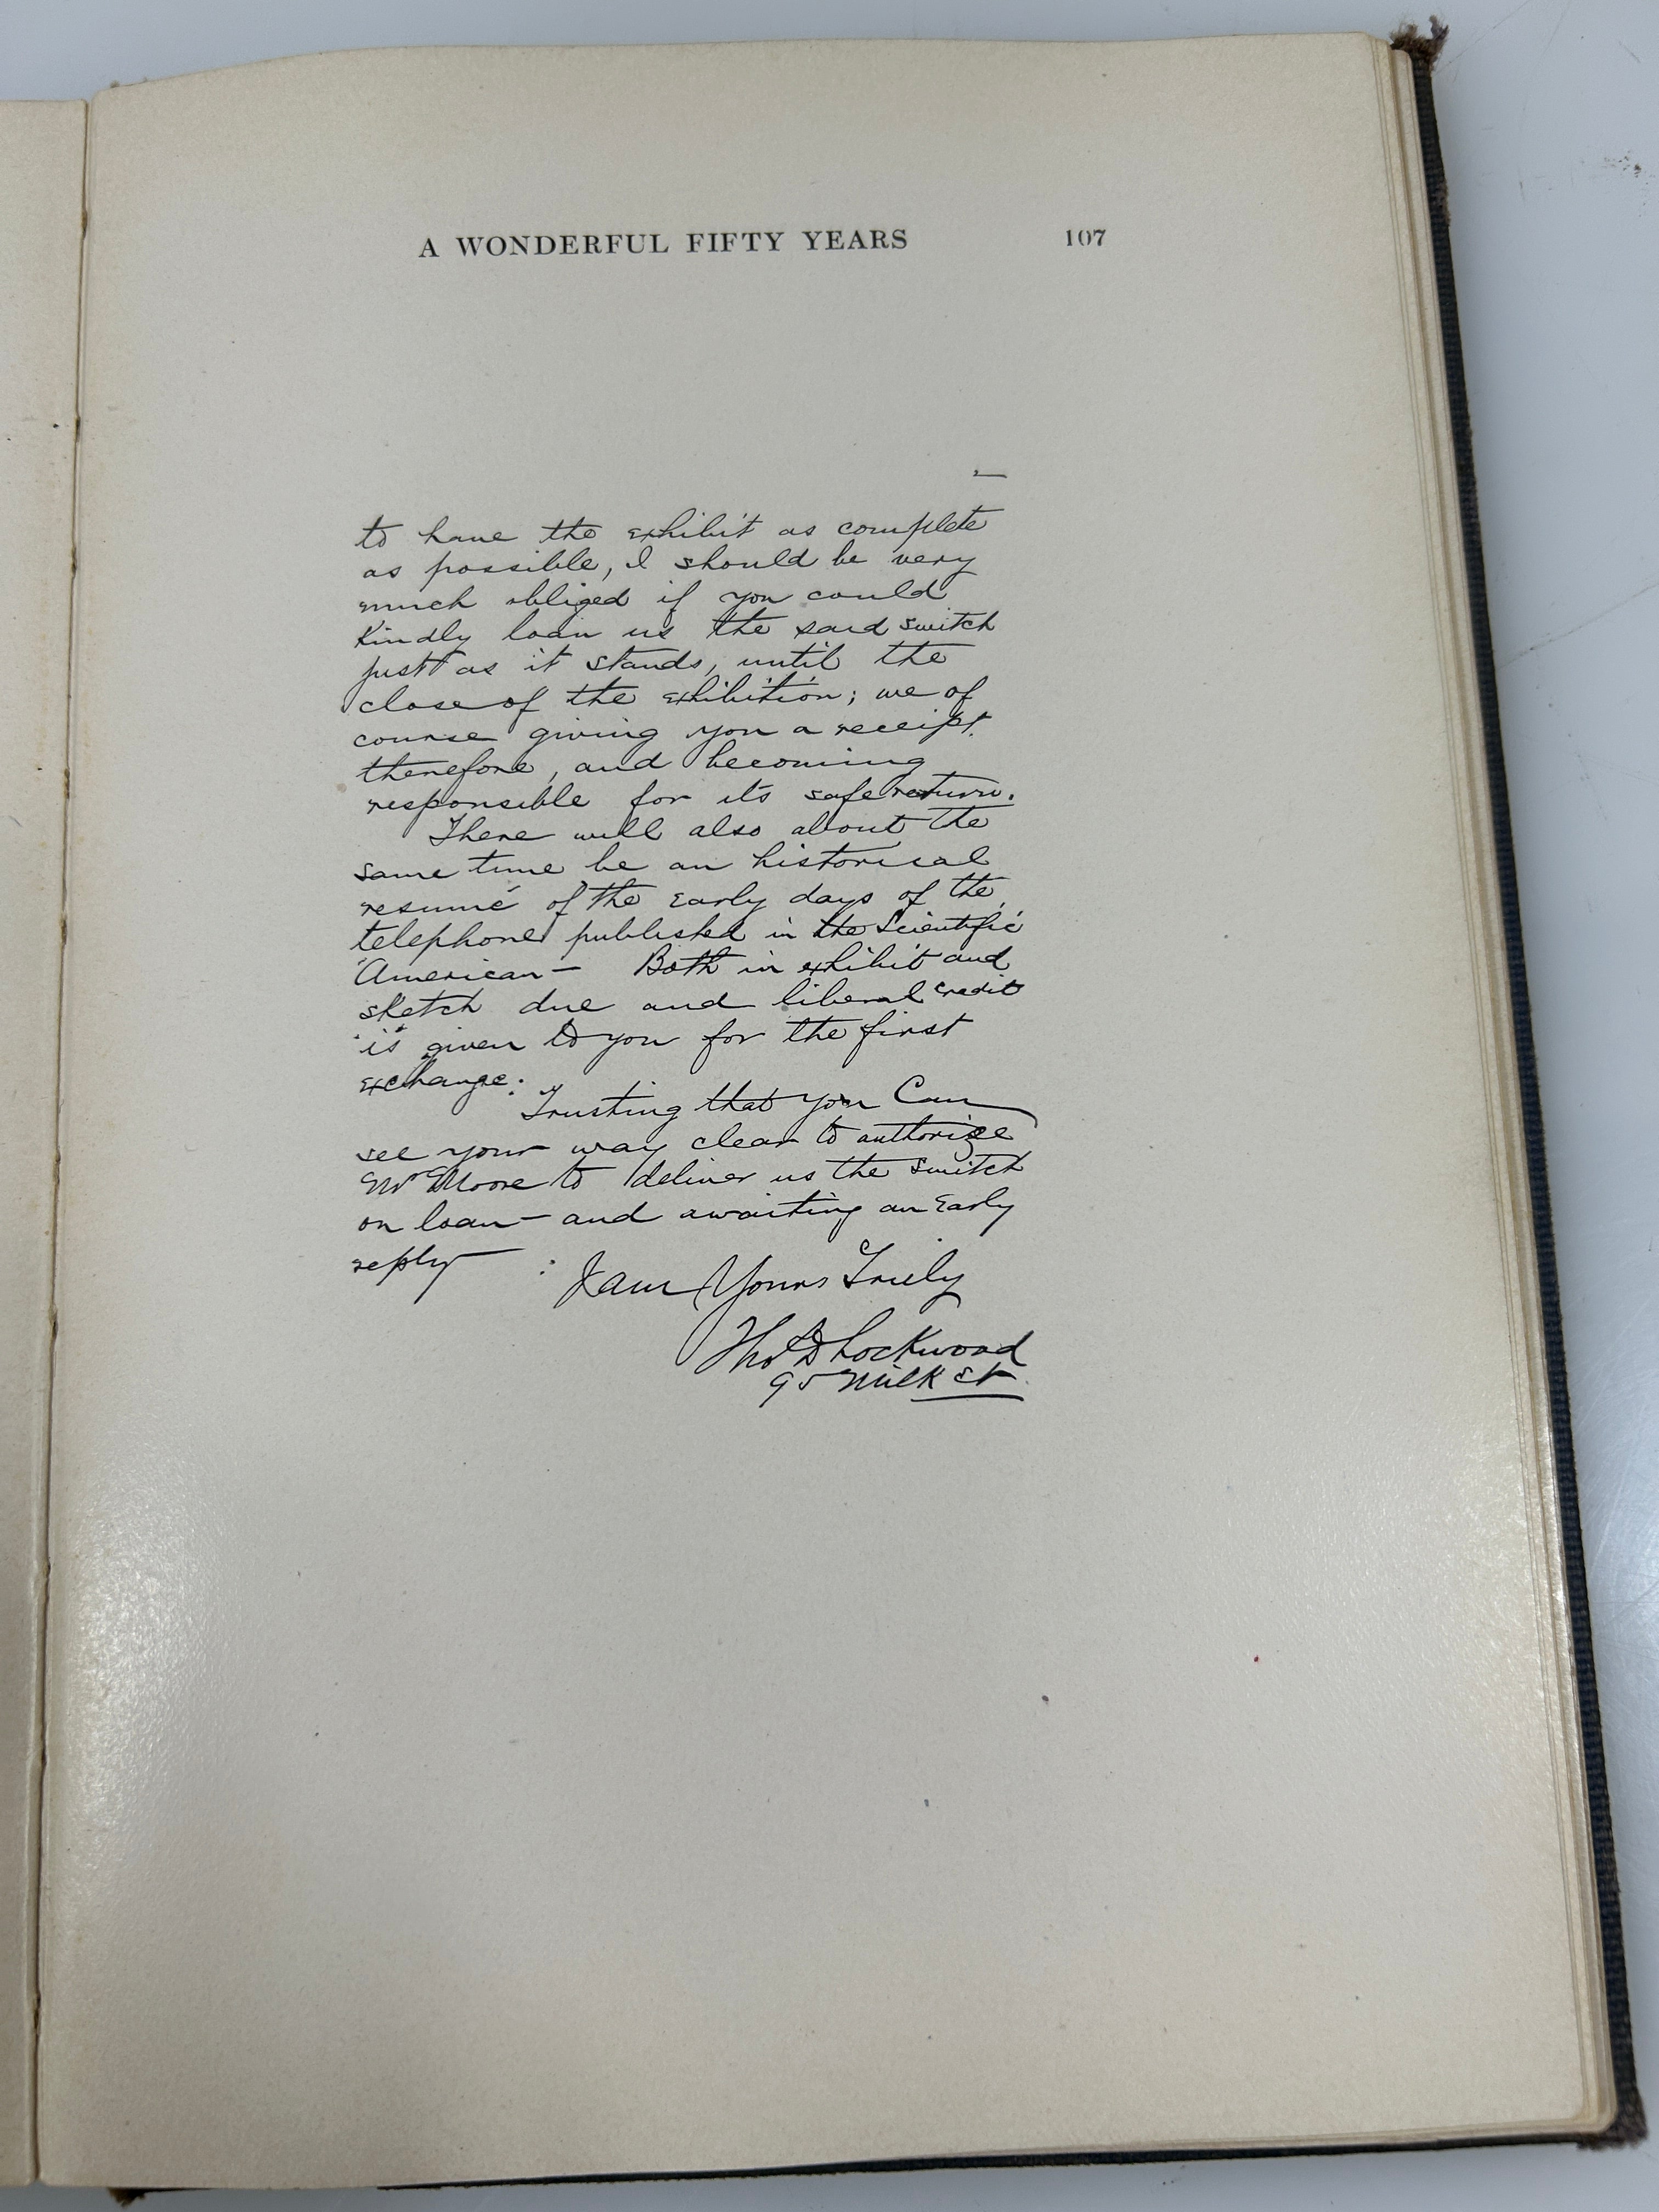 A WONDERFUL FIFTY YEARS 107
to have the exhibit as complete
as possible, I should be very
much obliged if you could
Kindly loan us the said switch
just as it stands, until the
close of the exhibition; we of
course giving you a receipt
therefore, and becoming
responsible for its safe return.
There will also about the
same time be an historical
resumé of the Early days of the
telephone published in the Scientific
American — Both in exhibit and
sketch due and liberal credit
is given to you for the first
exchange.
Trusting that you Can
see your way clear to authorize
Mr Moore to deliver us the switch
on loan — and awaiting an Early
reply :
I am Yours Truly
Thos D Lockwood
95 Milk St